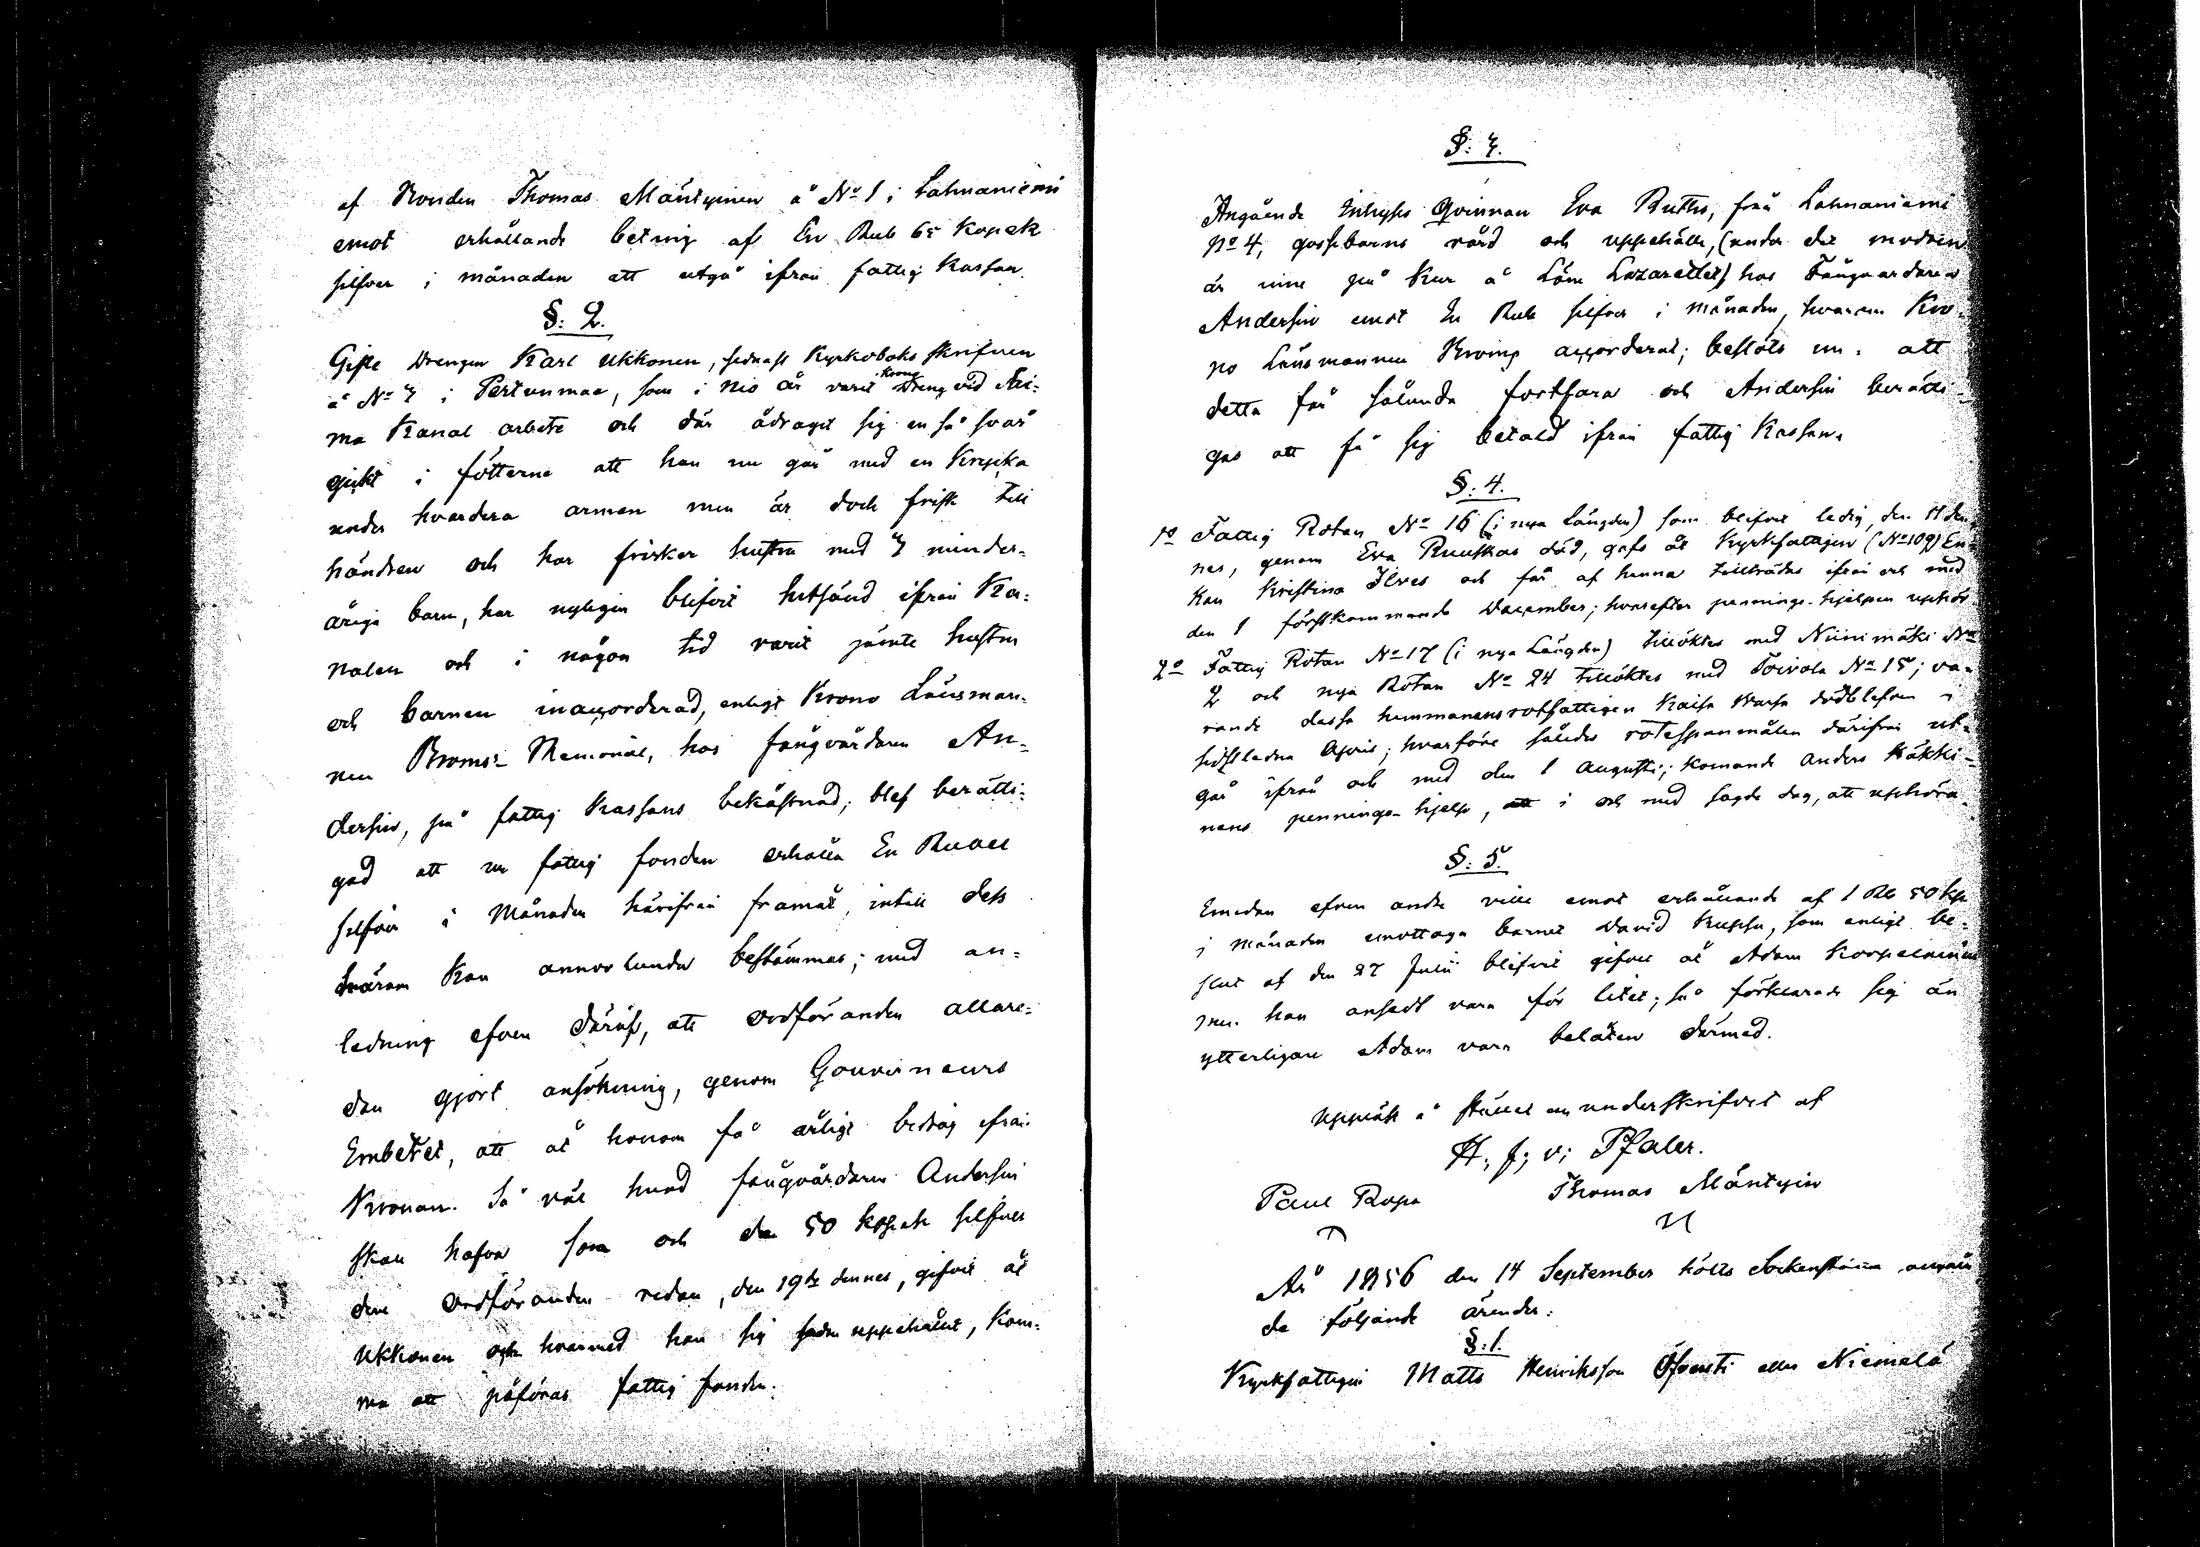 af Bonden Thomas Mäntynen å No 1 i Lahnaniemi
emot erhållande beting af En Rub 65 Kopek
silfver i månaden att utgå ifrån fattig Kassan.
§: 2.
Gifte Drengen Karl Ukkonen, sednast Kyrkoboks skrifven
å No 3 i Pertunmaa, som i nio år varit Krono Dreng vid Sai-
ma Kanal arbete och där ådragit sig en så svår
gickt i fötterna att han nu går med en Krycka
under hvardera armen men är doch frisk till
händren och har frisker hustru med 3 minder-
åriga barn, har nyligen blifvit hitsänd ifrån Ka-
nalen och i någon tid varit jämte hustru
och barnen inaccorderad, enligt Krono Länsman-
nen Broms's Memorial, hos fångvårdaren An-
dersin, på fattig Kassans bekåstnad; blef berätti-
gad att ur fattig fonden erhålla En Rubel
silfver i Månaden härifrån framåt, intill dess
häröm kan annorlunda bestämmas; med an-
ledning efven däraf, att ordföranden allare-
dan gjort ansökning, genom Gouverneurs
Embetet, att åt honom få årligt bidrag ifrån
Kronan. Så väl hvad fångvårdaren Andersin
skall hafva som och de 50 kopek silfver
dem Ordföranden redan, den 19de dennes, gifvit åt
Ukkonen och hvarmed han sig sedan uppehållit, kom-
ma att påföras fattig fonden.
§: 3.
Angående Inhyses Qvinnan Eva Ruths, från Lahnaniemi
No 4, gossebarns vård och uppehälle, (under det modren
är inne på Kur å Läns Lazarettet) hos Fångvårdaren
Andersin emot En Rub silfver i månaden, hvarom Kro-
no Länsmannen Broms accorderat; beslöts nu. att
detta får sålunda fortfara och Andersin berätti-
gas att få sig betald ifrån fattig Kassan.
§: 4.
1o Fattig Rotan No 16 (i nya Längden) som blifvit ledig, den 11 den-
nes, genom Eva Ruuskas död, gafs åt Kyrkfattigen (No 109) En-
kan Kristina Ilves och får af henne tillträdas ifrån och med
den 1 förstkommande December; hvarefter pennings-hjelpen upphör.
2o Fattig Rotan No 17 (i nya Längden) tillöktes med Niinimäki No
2 och nya Rotan No 24 tillöktes med Toivola No 15; va-
rande dessa hemmanens rotfattigen Kaisa dödblefven i
sistledne April; hvarföre således rotespanmålen därifrån ut-
går ifrån och med den 1 Augusti; komande Anders Häkki-
nens pennings-hjelp, i och med sagde dag, att upphöra.
§: 5.
Emedan efven andre ville emot erhållande af 1 Rub 50 kop
i Månaden emottaga barnet David Kuppu, som enligt be-
slut af den 27 Julii blifvit gifvit åt Adam Korpelainen
men han ansedt vara för litet; så förklarade sig än
ytterligare Adam vara belåten därmed.
Uppläst å stället och underskrifvet af
H. f; v; Pfaler.
Paul Ropa Thomas Mäntyin
År 1856 den 14 September hölls Sockenstämma angåen
de följande ärender:
§: 1.
Kyrkfattigen Matts Henriksson Öfversti eller Niemelä